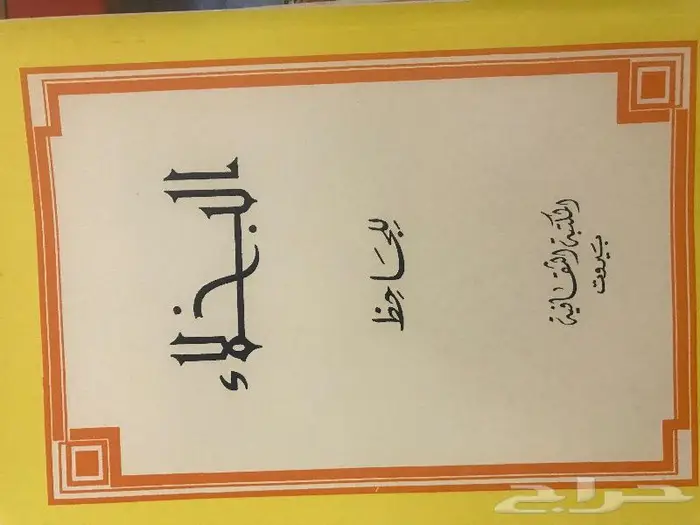 البخلاء
للجاحظ
المكتبة الثقافية
بيروت
حراج